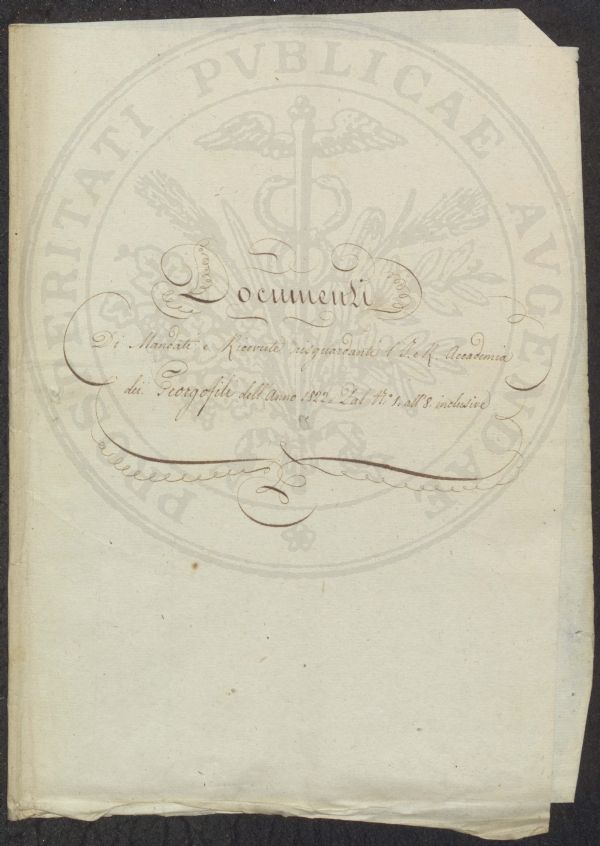 PROSPERITATI PVBLICAE AVGENDAE
Documenti
Di Mandati e Ricevute risguardanti l'I. e R. Accademia
dei Georgofili dell'Anno 1822. Dal N.° 1. all' 8. inclusive